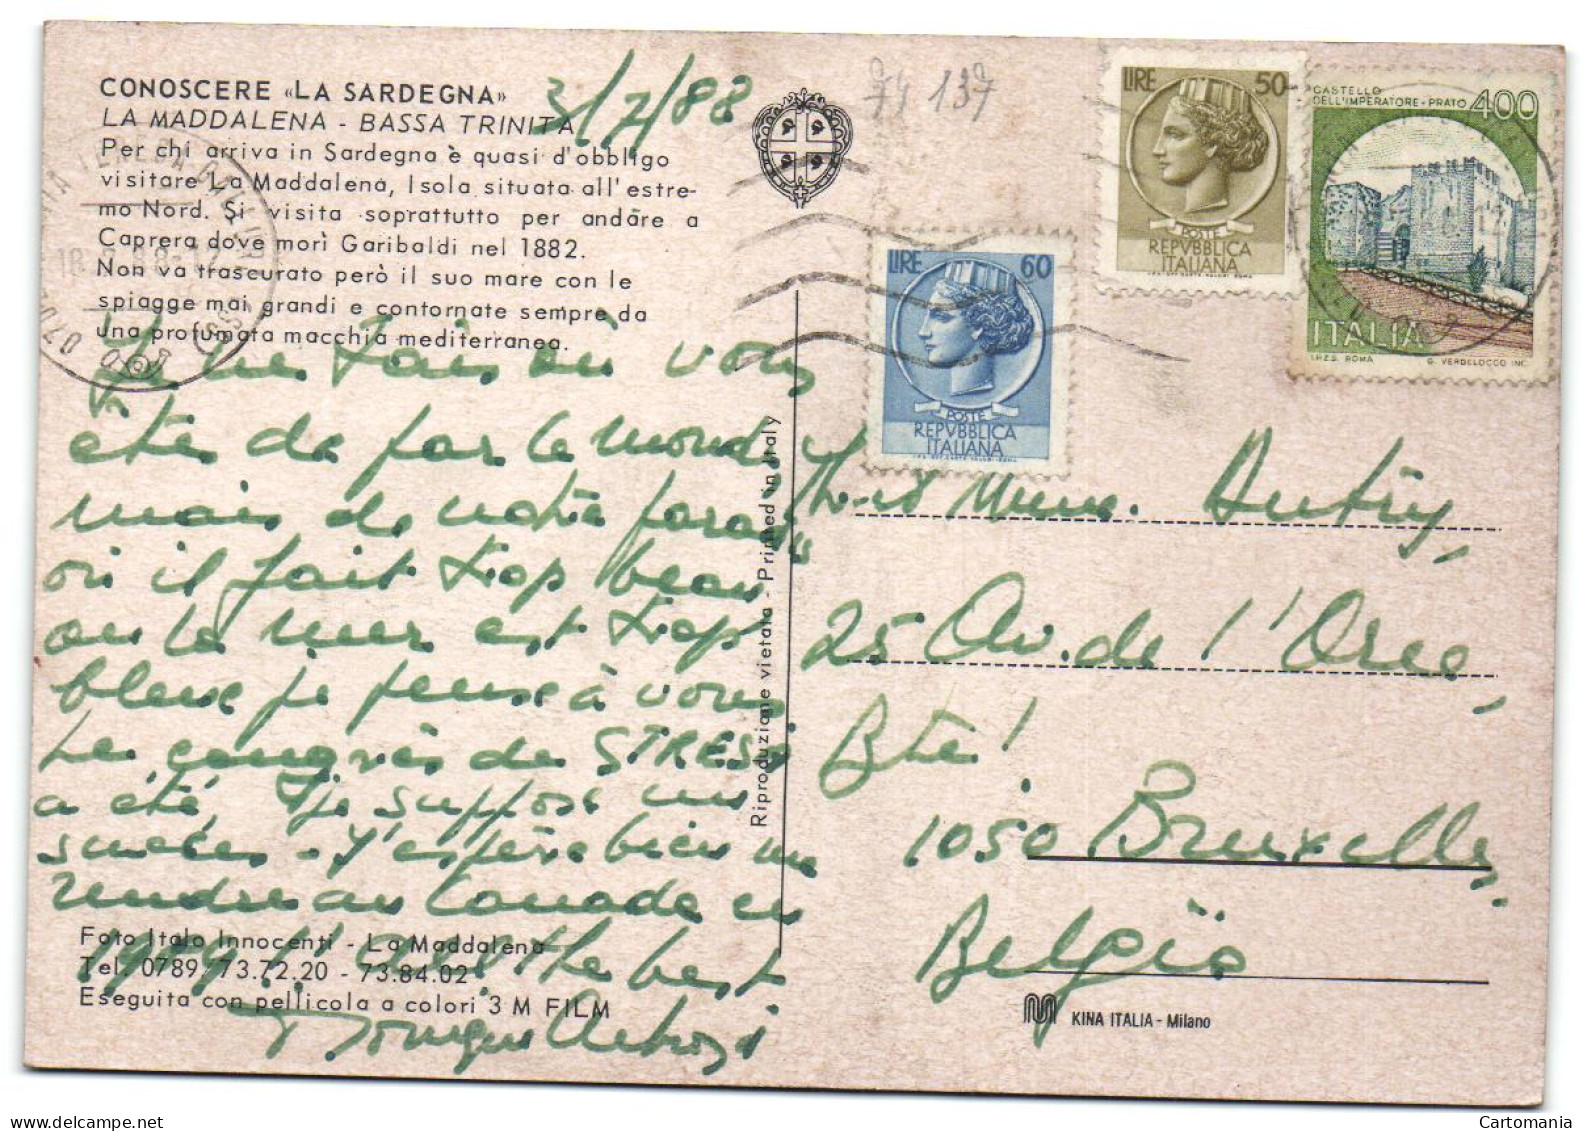 CONOSCERE «LA SARDEGNA»
LA MADDALENA - BASSA TRINITA
Per chi arriva in Sardegna è quasi d'obbligo
visitare La Maddalena, Isola situata all'estre-
mo Nord. Si visita soprattutto per andare a
Caprera dove morì Garibaldi nel 1882.
Non va trascurato però il suo mare con le
spiagge mai grandi e contornate sempre da
una profumata macchia mediterranea.
3/7/88
137
LIRE 50
POSTE
REPVBBLICA
ITALIANA
CASTELLO
DELL'IMPERATORE - PRATO 400
ITALIA
I.P.Z.S. ROMA G. VERDELOCCO INC.
LIRE 60
POSTE
REPVBBLICA
ITALIANA
Je ne sais où vous
êtes de par le monde
mais de notre
où il fait trop beau
où la mer est trop
bleue je pense à vous
Le congrès de STRESA
a été, je suppose un
succès - J'espère bien me
rendre au Canada en
1989! all the best
Riproduzione vietata - Printed in Italy
Autry,
25 Av. de l'Orée,
Bte!
1050 Bruxelles,
Belgio
Foto Italo Innocenti - La Maddalena
Tel. 0789/73.72.20 - 73.84.02
Eseguita con pellicola a colori 3 M FILM
KINA ITALIA - Milano
Cartomania